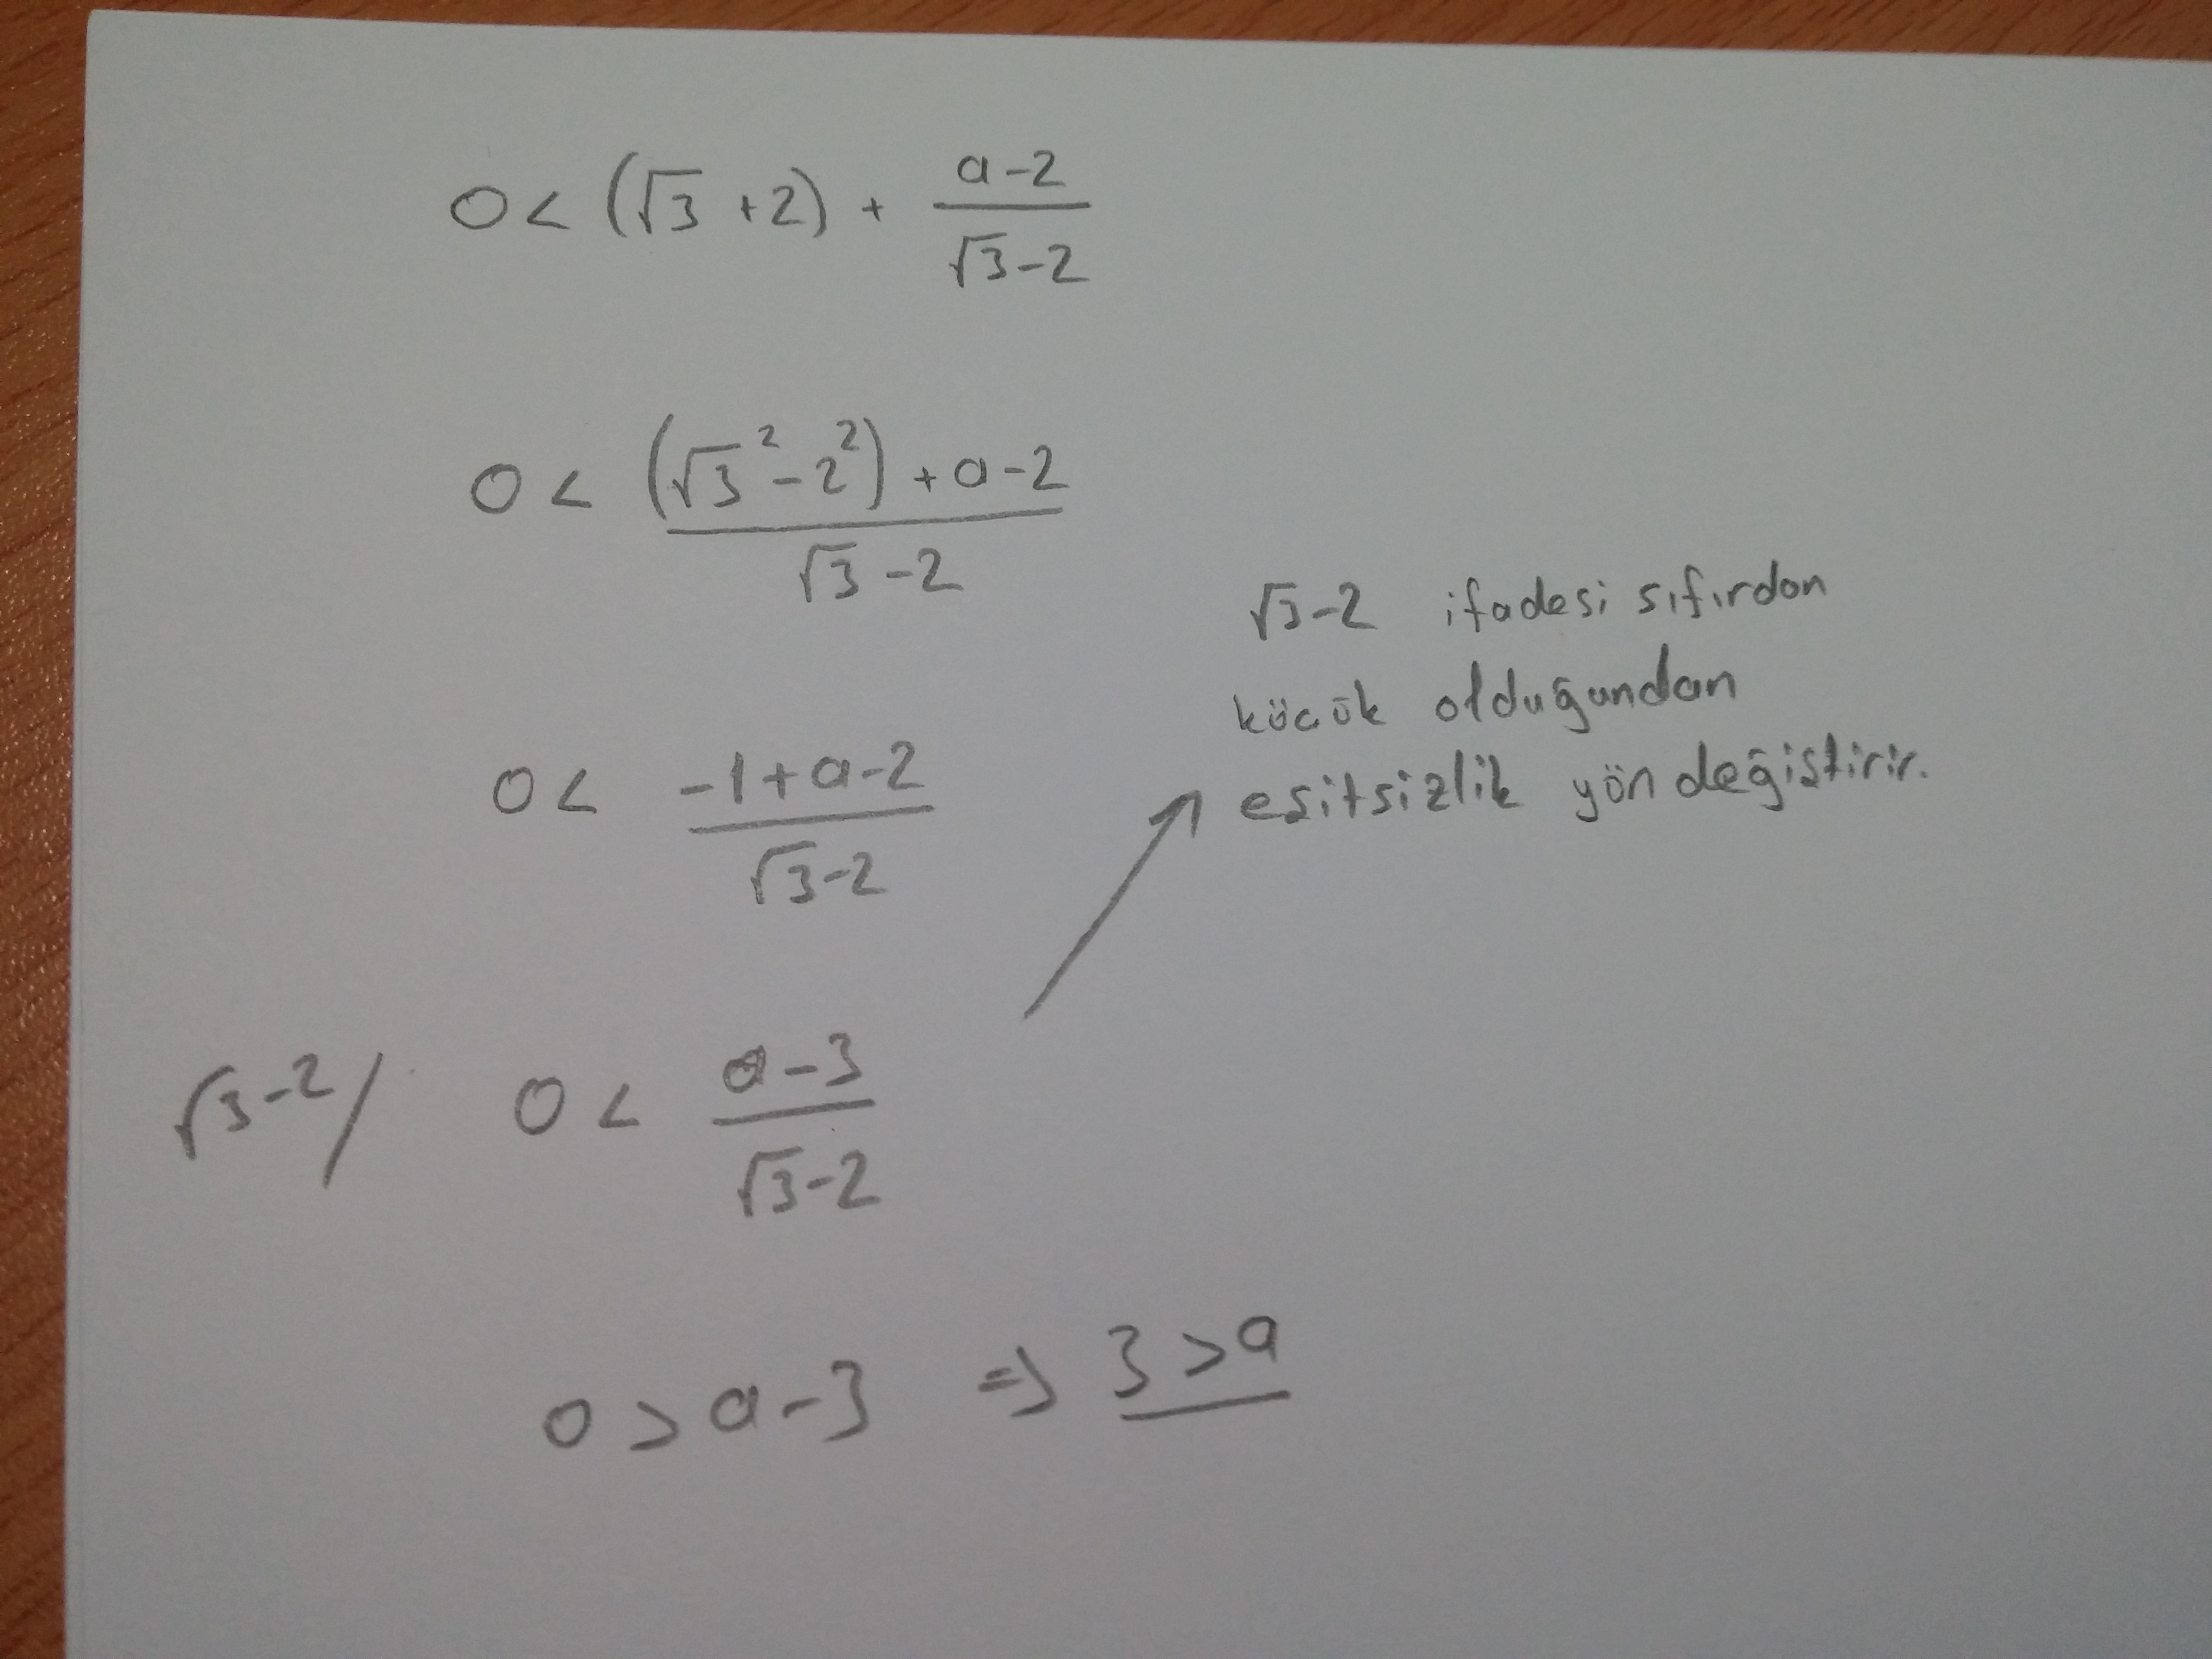 0 < (√3 + 2) + (a-2)/(√3-2)
0 < ((√3² - 2²) + a - 2)/(√3 - 2)
√3-2 ifadesi sıfırdan
küçük olduğundan
eşitsizlik yön değiştirir.
0 < (-1 + a - 2)/(√3-2)
√3-2 / 0 < (a-3)/(√3-2)
0 > a - 3 ⇒ 3 > a